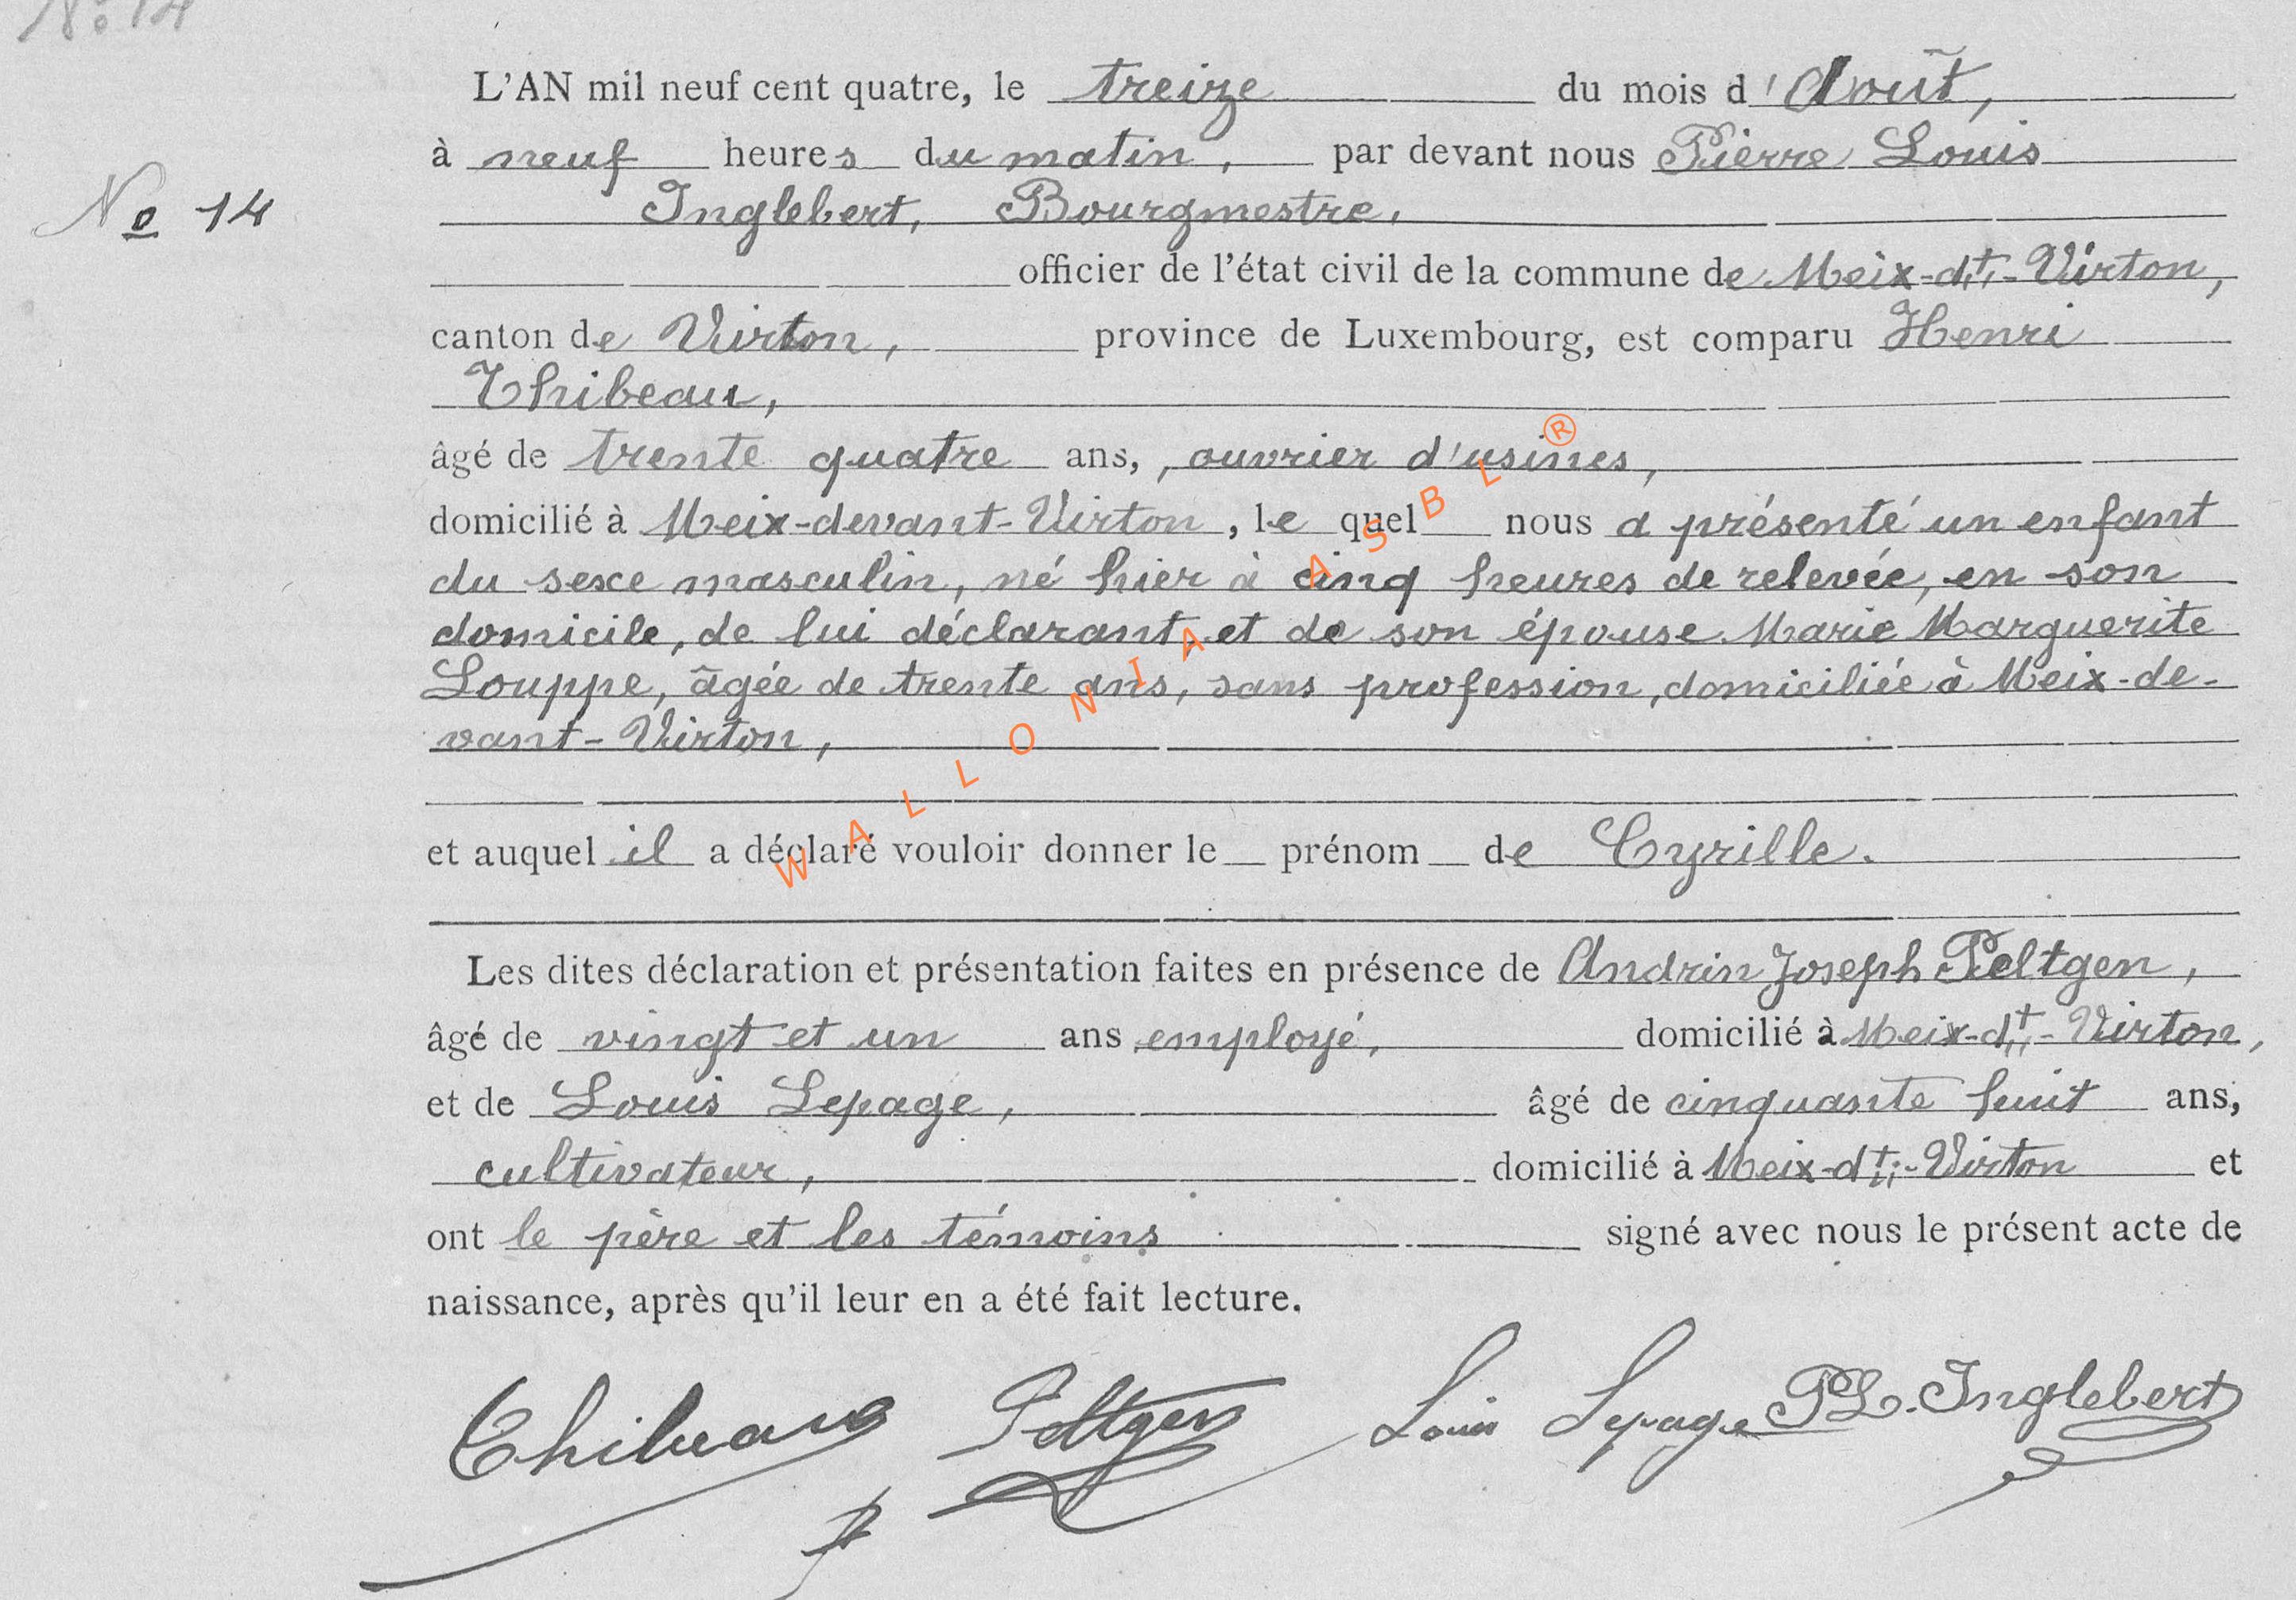 No 14
L'AN mil neuf cent quatre, le treize du mois d'Août,
à neuf heures du matin, par devant nous Pierre Louis
No 14 Inglebert, Bourgmestre,
officier de l'état civil de la commune de Meix-dt-Virton,
canton de Virton, province de Luxembourg, est comparu Henri
Thibeau,
âgé de trente quatre ans, , ouvrier d'usines,
domicilié à Meix-devant-Virton, le quel nous a présenté un enfant
du sexe masculin, né hier à cinq heures de relevée, en son
domicile, de lui déclarant et de son épouse Marie Marguerite
Louppe, âgée de trente ans, sans profession, domiciliée à Meix-de-
vant-Virton,
et auquel il a déclaré vouloir donner le prénom de Cyrille.
Les dites déclaration et présentation faites en présence de Andrin Joseph Peltgen,
âgé de vingt et un ans employé, domicilié à Meix-dt-Virton,
et de Louis Lepage, âgé de cinquante huit ans,
cultivateur, domicilié à Meix-dt-Virton et
ont le père et les témoins signé avec nous le présent acte de
naissance, après qu'il leur en a été fait lecture.
Thibeau Peltgen Louis Lepage PL. Inglebert
WALLONIA ASBL ®